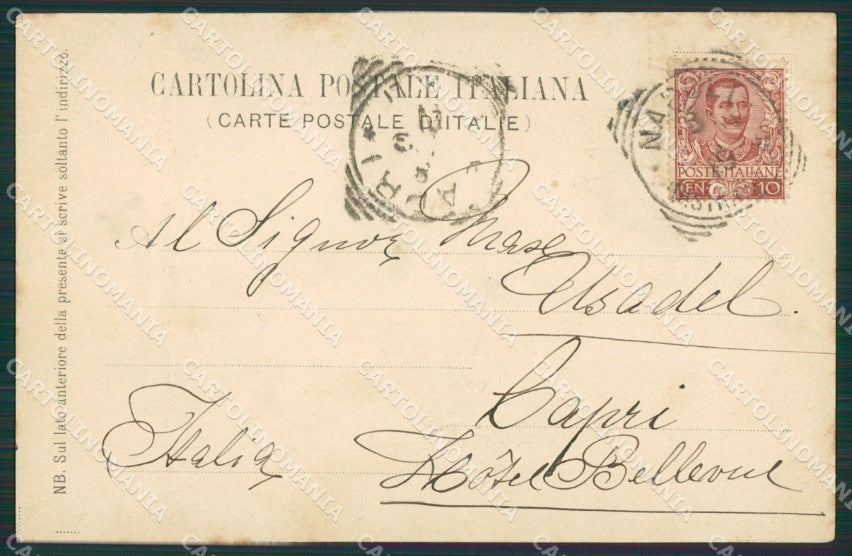 CARTOLINA POSTALE ITALIANA
(CARTE POSTALE D'ITALIE)
POSTE ITALIANE
CENT. 10
Al Signor
Usadel.
Capri
Italia
Hôtel Bellevue
NB. Sul lato anteriore della presente si scrive soltanto l'indirizzo.
CARTOLINOMANIA